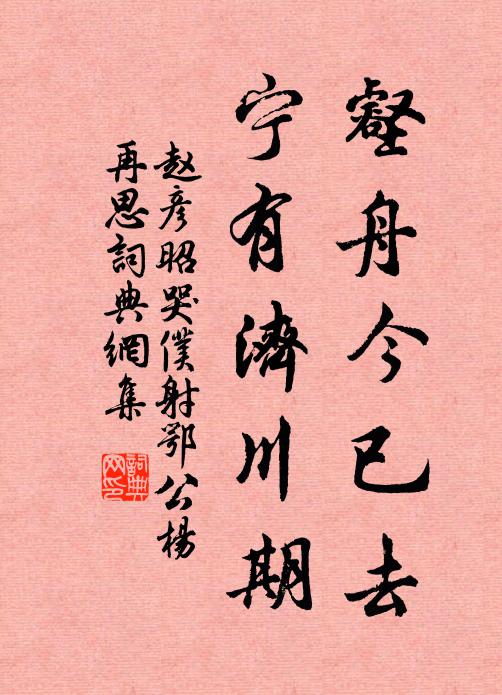 壑舟今已去
宁有濟川期
赵彦昭哭僕射鄂公楊
再思詞典網集
詞典
网印